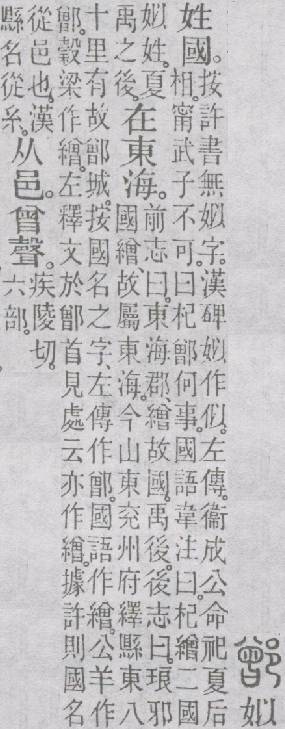 鄫姒
姓國。
按許書無姒字。漢碑姒作似。左傳。衞成公命祀夏后
相。甯武子不可。曰杞鄫何事。國語韋注曰。杞繒二國
姒姓。夏
禹之後。
在東海。
前志曰。東海郡、繒。故國。禹後。後志曰。琅邪
國繒、故屬東海。今山東兖州府繹縣東八
十里有故鄫城。按國名之字、左傳作鄫。國語作繒。公羊作
鄫。穀梁作繒。左釋文於鄫首見處云亦作繒。據許則國名
從邑也。漢
縣名從糸。
从邑。曾聲。
疾陵切。
六部。